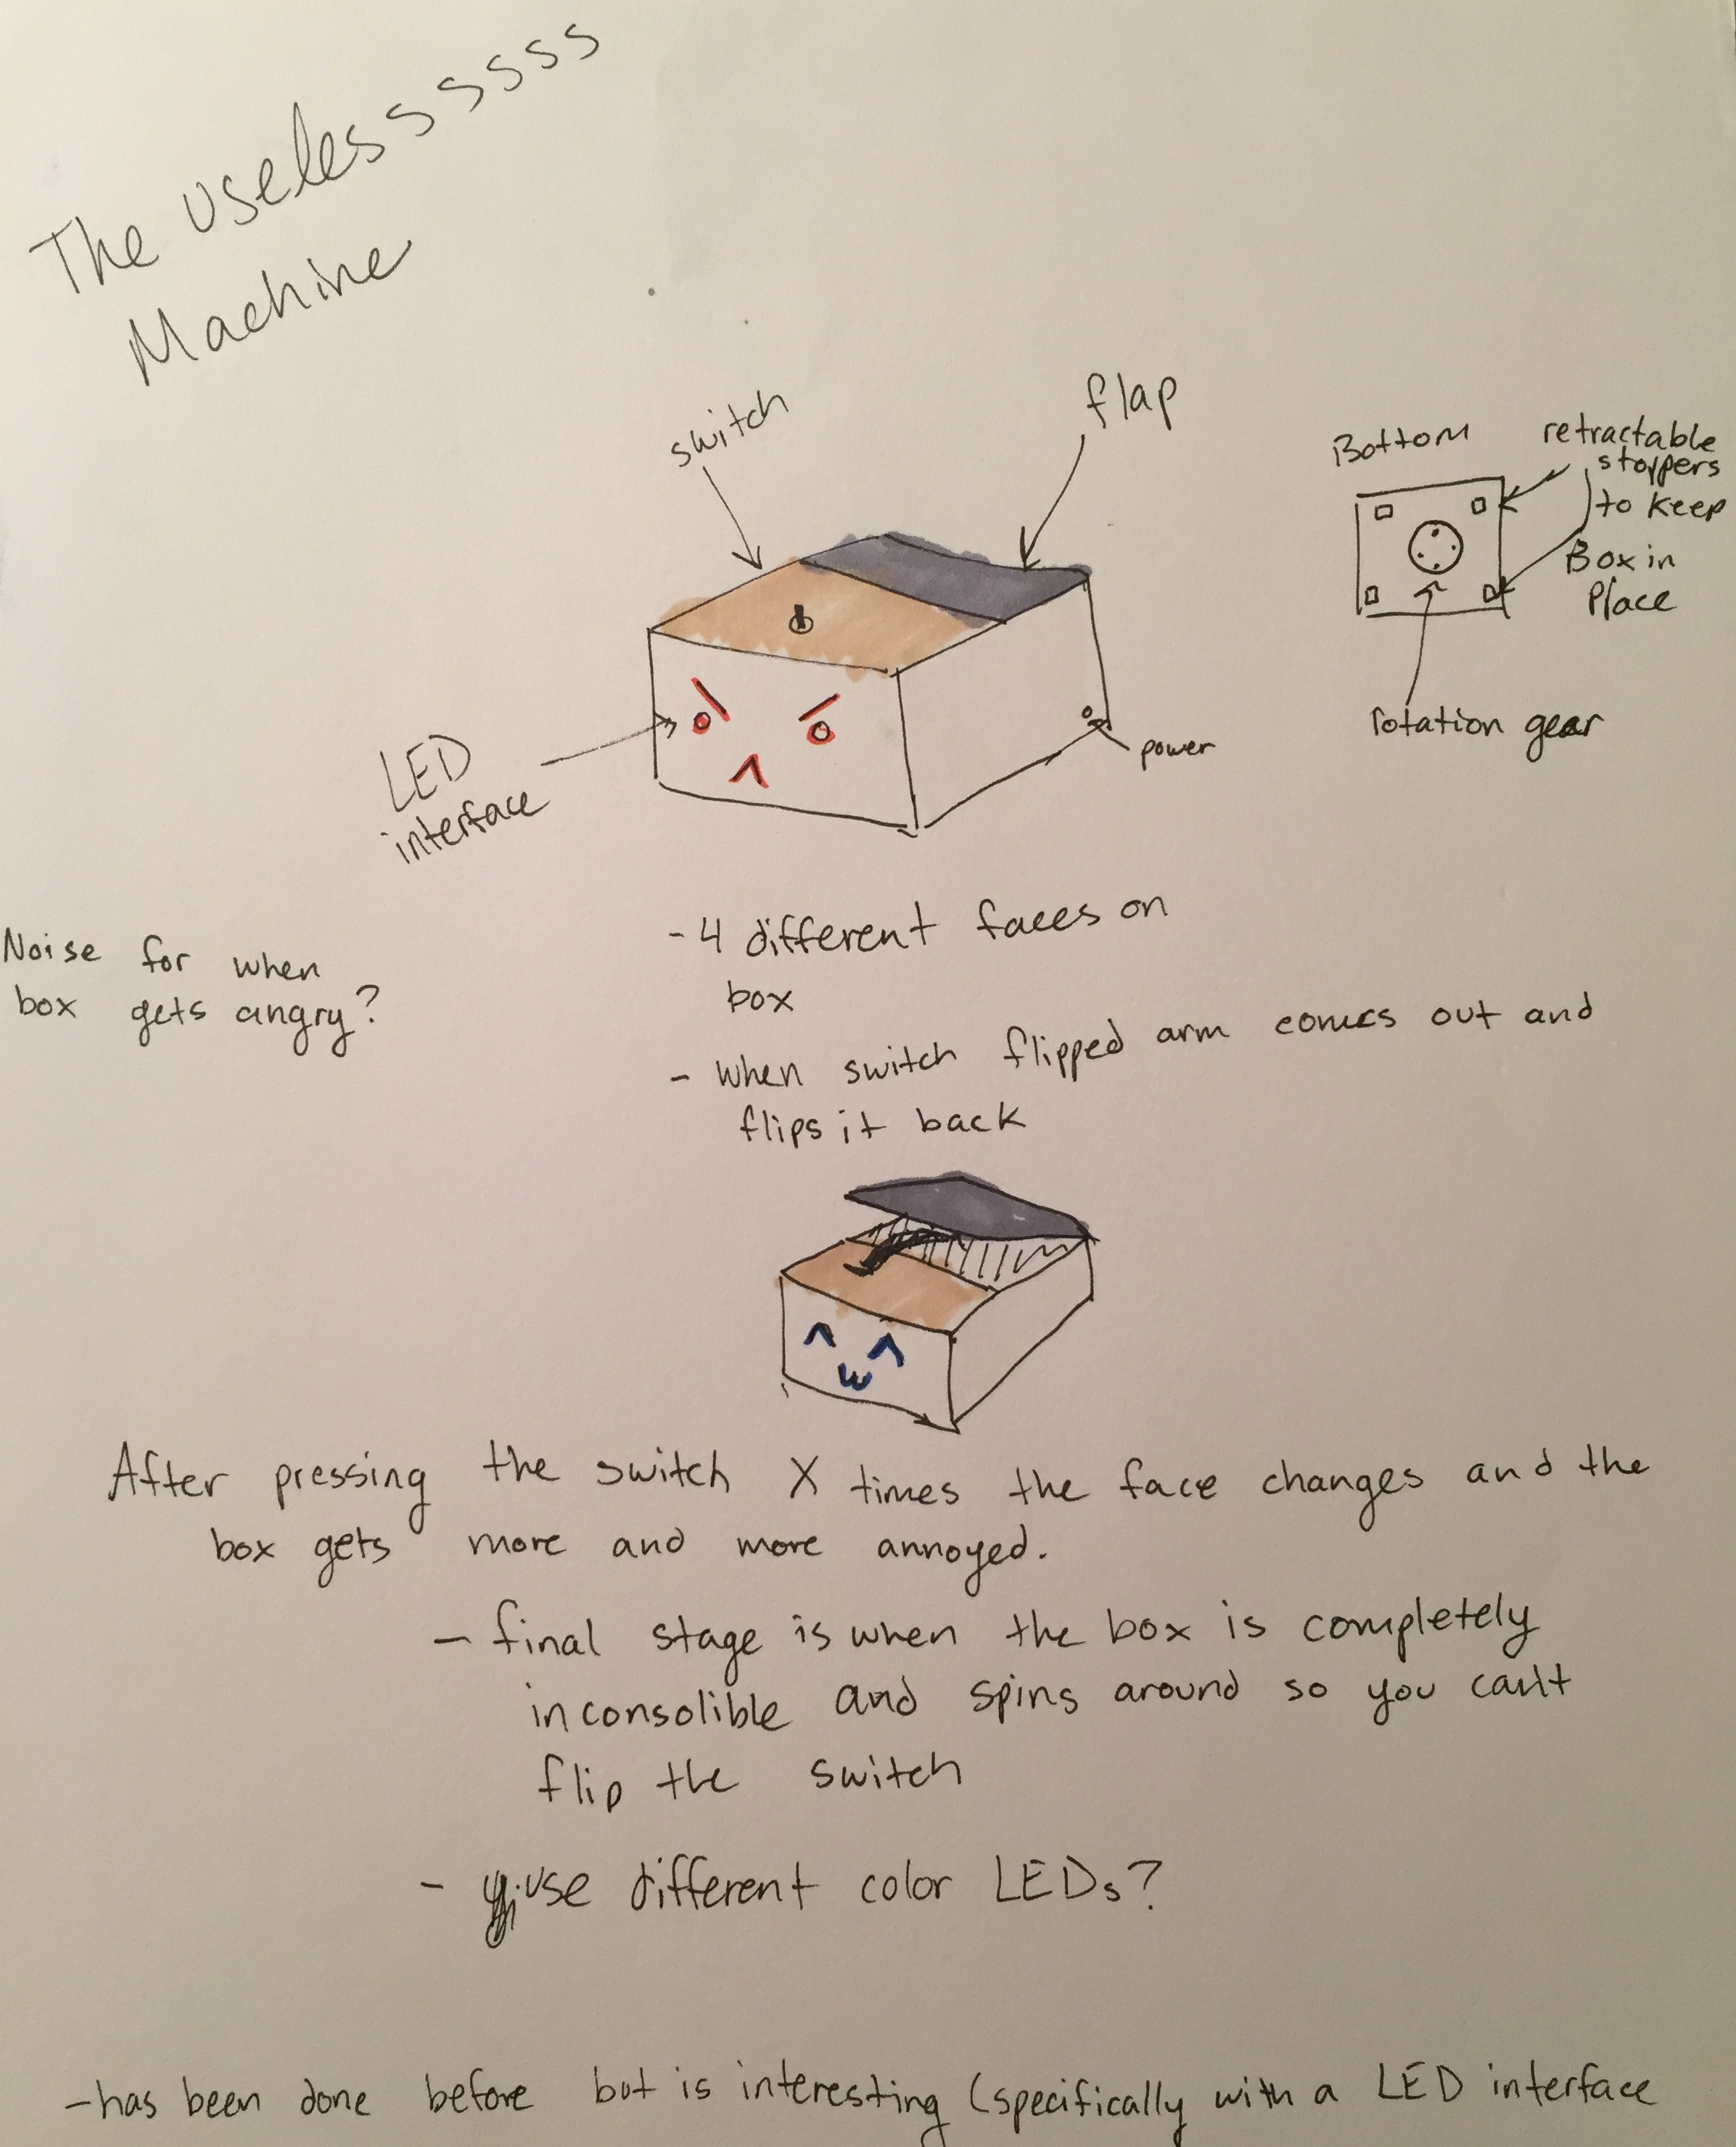 The uselesssssss
Machine
switch
flap
Bottom
retractable
stoppers
to keep
Box in
Place
rotation gear
LED
interface
power
Noise for when
box gets angry?
- 4 different faces on
box
- when switch flipped arm comes out and
flips it back
After pressing the switch X times the face changes and the
box gets more and more annoyed.
- final stage is when the box is completely
inconsolible and spins around so you can't
flip the switch
- use different color LEDs?
- has been done before but is interesting (specifically with a LED interface